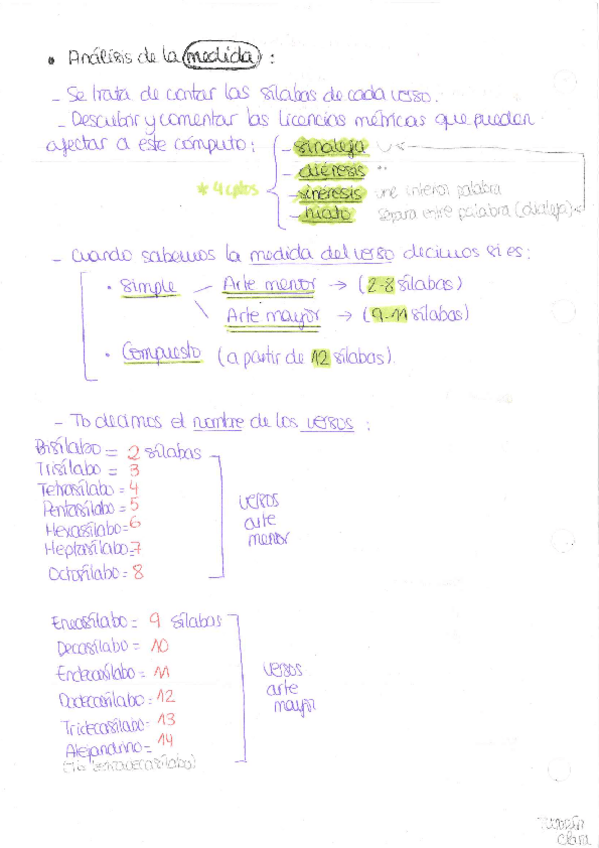 • Análisis de la medida :
- Se trata de contar las sílabas de cada verso.
- Descubrir y comentar las licencias métricas que pueden
afectar a este cómputo :
* 4 cptos
- sinalefa
- diéresis ¨
- sinéresis une interior palabra
- hiato separa entre palabra (dialefa)
- Cuando sabemos la medida del verso decimos si es:
• Simple - Arte menor → (2-8 sílabas)
Arte mayor → (9-11 sílabas)
• Compuesto (a partir de 12 sílabas).
- Tb decimos el nombre de los versos :
Bisílabo = 2 sílabas
Trisílabo = 3
Tetrasílabo = 4
Pentasílabo = 5
Hexasílabo = 6
Heptasílabo = 7
Octosílabo = 8
versos
arte
menor
Eneasílabo = 9 sílabas
Decasílabo = 10
Endecasílabo = 11
Dodecasílabo = 12
Tridecasílabo = 13
Alejandrino = 14
(Tb tetradecasílabo)
versos
arte
mayor
Clara